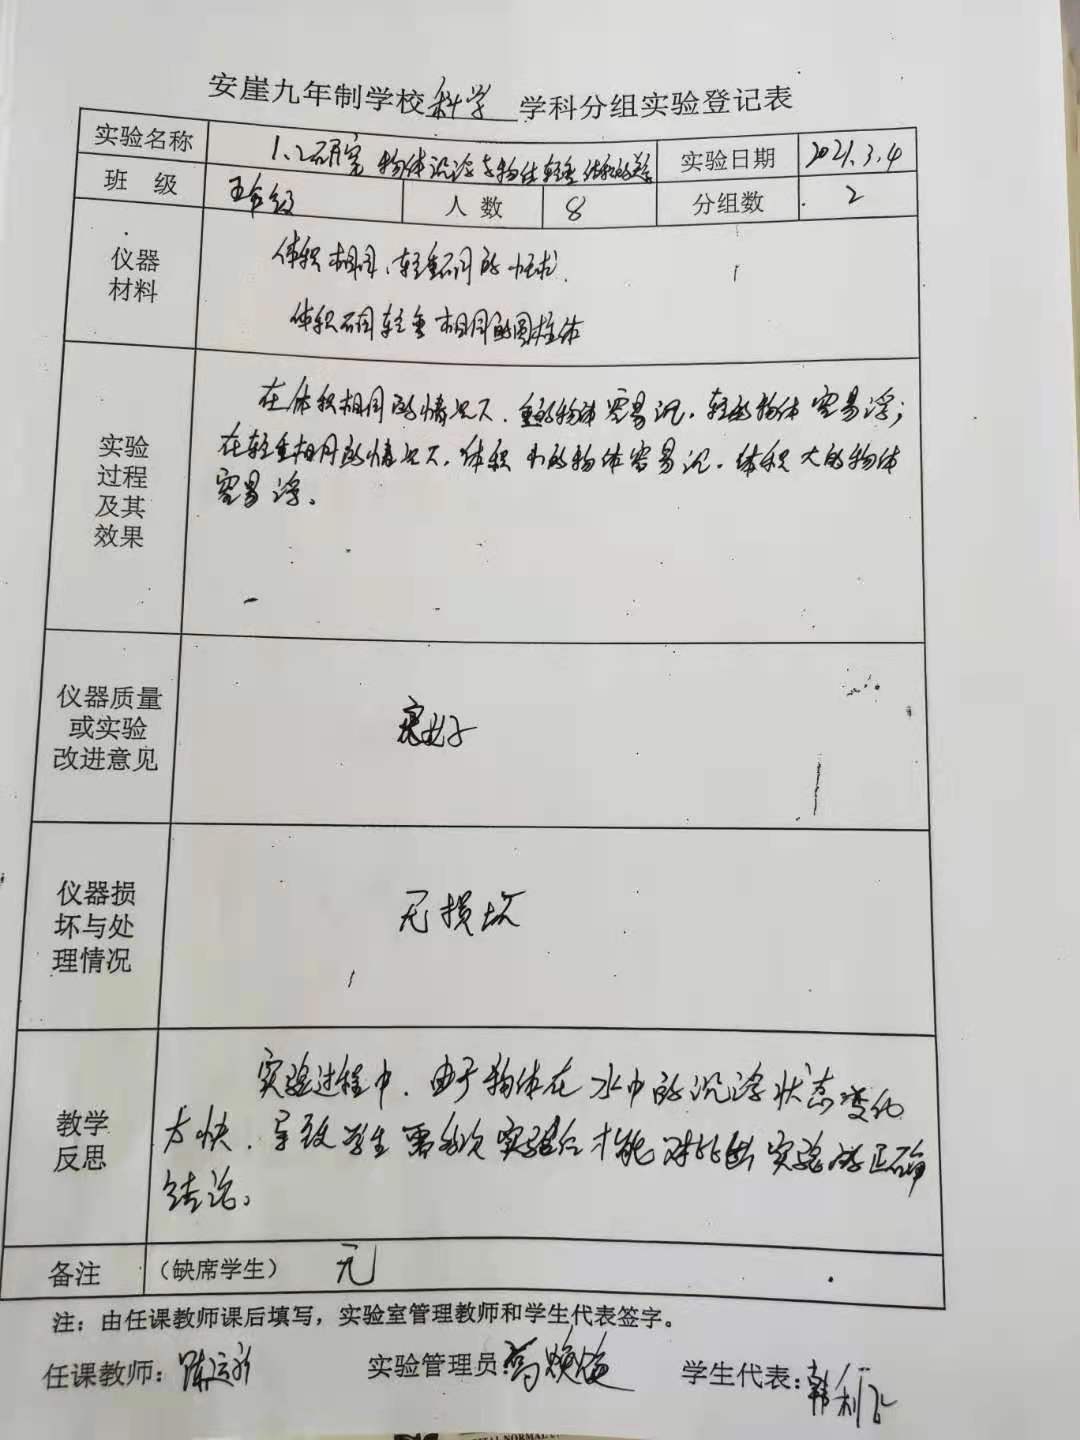 安崖九年制学校科学学科分组实验登记表
实验名称 1.2研究物体沉浮与物体轻重 体积的关系 实验日期 2021.3.4
班 级 五年级 人 数 8 分组数 2
仪器材料 体积相同、轻重不同的小球.
体积不同轻重相同的圆柱体
实验过程及其效果 在体积相同的情况下.重的物体容易沉.轻的物体容易浮;
在轻重相同的情况下.体积小的物体容易沉.体积大的物体
容易浮。
仪器质量或实验改进意见 完好
仪器损坏与处理情况 无损坏
教学反思 实验过程中.由于物体在水中的沉浮状态变化
太快.导致学生需多次实验后才能对比出实验的正确
结论。
备注 (缺席学生) 无
注:由任课教师课后填写,实验室管理教师和学生代表签字。
任课教师: 实验管理员: 学生代表:韩利